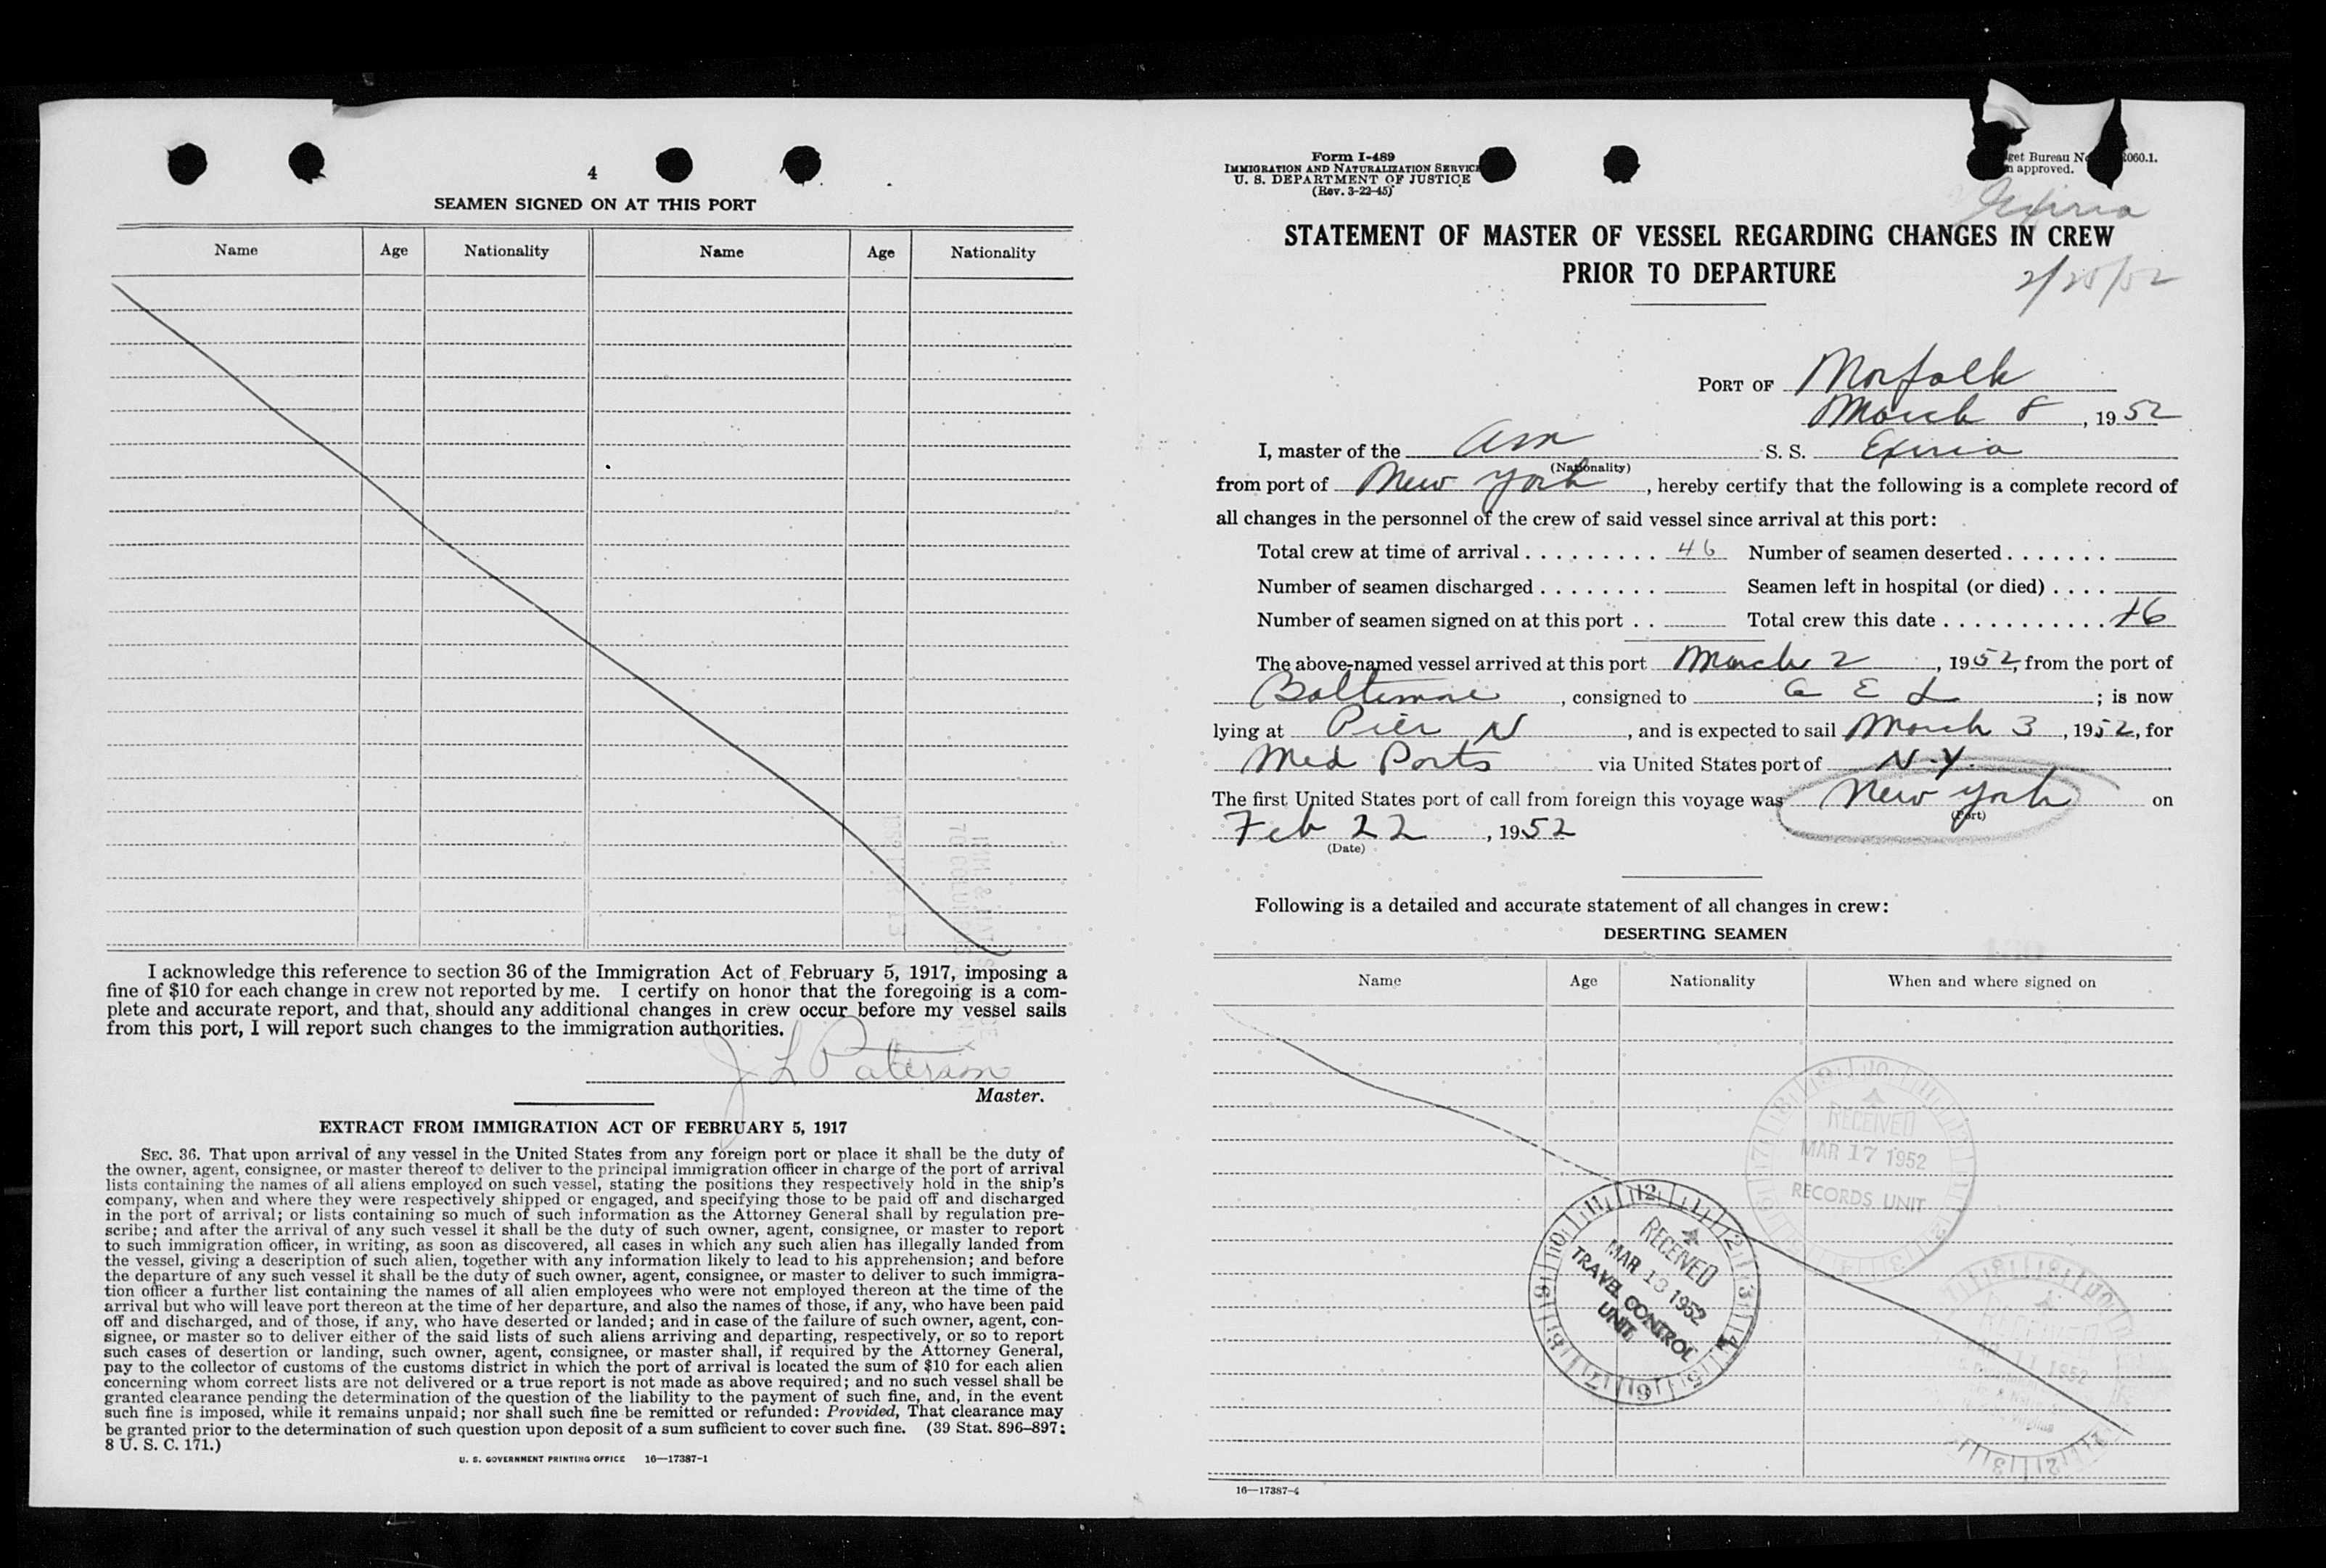 4
SEAMEN SIGNED ON AT THIS PORT
Name Age Nationality Name Age Nationality
I acknowledge this reference to section 36 of the Immigration Act of February 5, 1917, imposing a
fine of $10 for each change in crew not reported by me. I certify on honor that the foregoing is a com-
plete and accurate report, and that, should any additional changes in crew occur before my vessel sails
from this port, I will report such changes to the immigration authorities.
J L Paterson
Master.
EXTRACT FROM IMMIGRATION ACT OF FEBRUARY 5, 1917
SEC. 36. That upon arrival of any vessel in the United States from any foreign port or place it shall be the duty of
the owner, agent, consignee, or master thereof to deliver to the principal immigration officer in charge of the port of arrival
lists containing the names of all aliens employed on such vessel, stating the positions they respectively hold in the ship's
company, when and where they were respectively shipped or engaged, and specifying those to be paid off and discharged
in the port of arrival; or lists containing so much of such information as the Attorney General shall by regulation pre-
scribe; and after the arrival of any such vessel it shall be the duty of such owner, agent, consignee, or master to report
to such immigration officer, in writing, as soon as discovered, all cases in which any such alien has illegally landed from
the vessel, giving a description of such alien, together with any information likely to lead to his apprehension; and before
the departure of any such vessel it shall be the duty of such owner, agent, consignee, or master to deliver to such immigra-
tion officer a further list containing the names of all alien employees who were not employed thereon at the time of the
arrival but who will leave port thereon at the time of her departure, and also the names of those, if any, who have been paid
off and discharged, and of those, if any, who have deserted or landed; and in case of the failure of such owner, agent, con-
signee, or master so to deliver either of the said lists of such aliens arriving and departing, respectively, or so to report
such cases of desertion or landing, such owner, agent, consignee, or master shall, if required by the Attorney General,
pay to the collector of customs of the customs district in which the port of arrival is located the sum of $10 for each alien
concerning whom correct lists are not delivered or a true report is not made as above required; and no such vessel shall be
granted clearance pending the determination of the question of the liability to the payment of such fine, and, in the event
such fine is imposed, while it remains unpaid; nor shall such fine be remitted or refunded: Provided, That clearance may
be granted prior to the determination of such question upon deposit of a sum sufficient to cover such fine. (39 Stat. 896–897;
8 U. S. C. 171.)
U. S. GOVERNMENT PRINTING OFFICE 16—17387-1
Form I-489
IMMIGRATION AND NATURALIZATION SERVICE
U. S. DEPARTMENT OF JUSTICE
(Rev. 3-22-45)
get Bureau No. 060.1.
approved.
Exiria
STATEMENT OF MASTER OF VESSEL REGARDING CHANGES IN CREW
PRIOR TO DEPARTURE
2/25/52
PORT OF Norfolk
March 8, 1952
I, master of the Am S. S. Exiria
(Nationality)
from port of New York, hereby certify that the following is a complete record of
all changes in the personnel of the crew of said vessel since arrival at this port:
Total crew at time of arrival . . . . . . . . . 46 Number of seamen deserted . . . . . . .
Number of seamen discharged . . . . . . . . Seamen left in hospital (or died) . . . .
Number of seamen signed on at this port . . Total crew this date . . . . . . . . . . . 46
The above-named vessel arrived at this port March 2, 1952, from the port of
Baltimore, consigned to A E L; is now
lying at Pier N, and is expected to sail March 3, 1952, for
Med Ports via United States port of N.Y.
The first United States port of call from foreign this voyage was New York on
(Port)
Feb 22, 1952
(Date)
Following is a detailed and accurate statement of all changes in crew:
DESERTING SEAMEN
Name Age Nationality When and where signed on
RECEIVED
MAR 17 1952
RECORDS UNIT
RECEIVED
MAR 13 1952
TRAVEL CONTROL
UNIT
16—17387-4